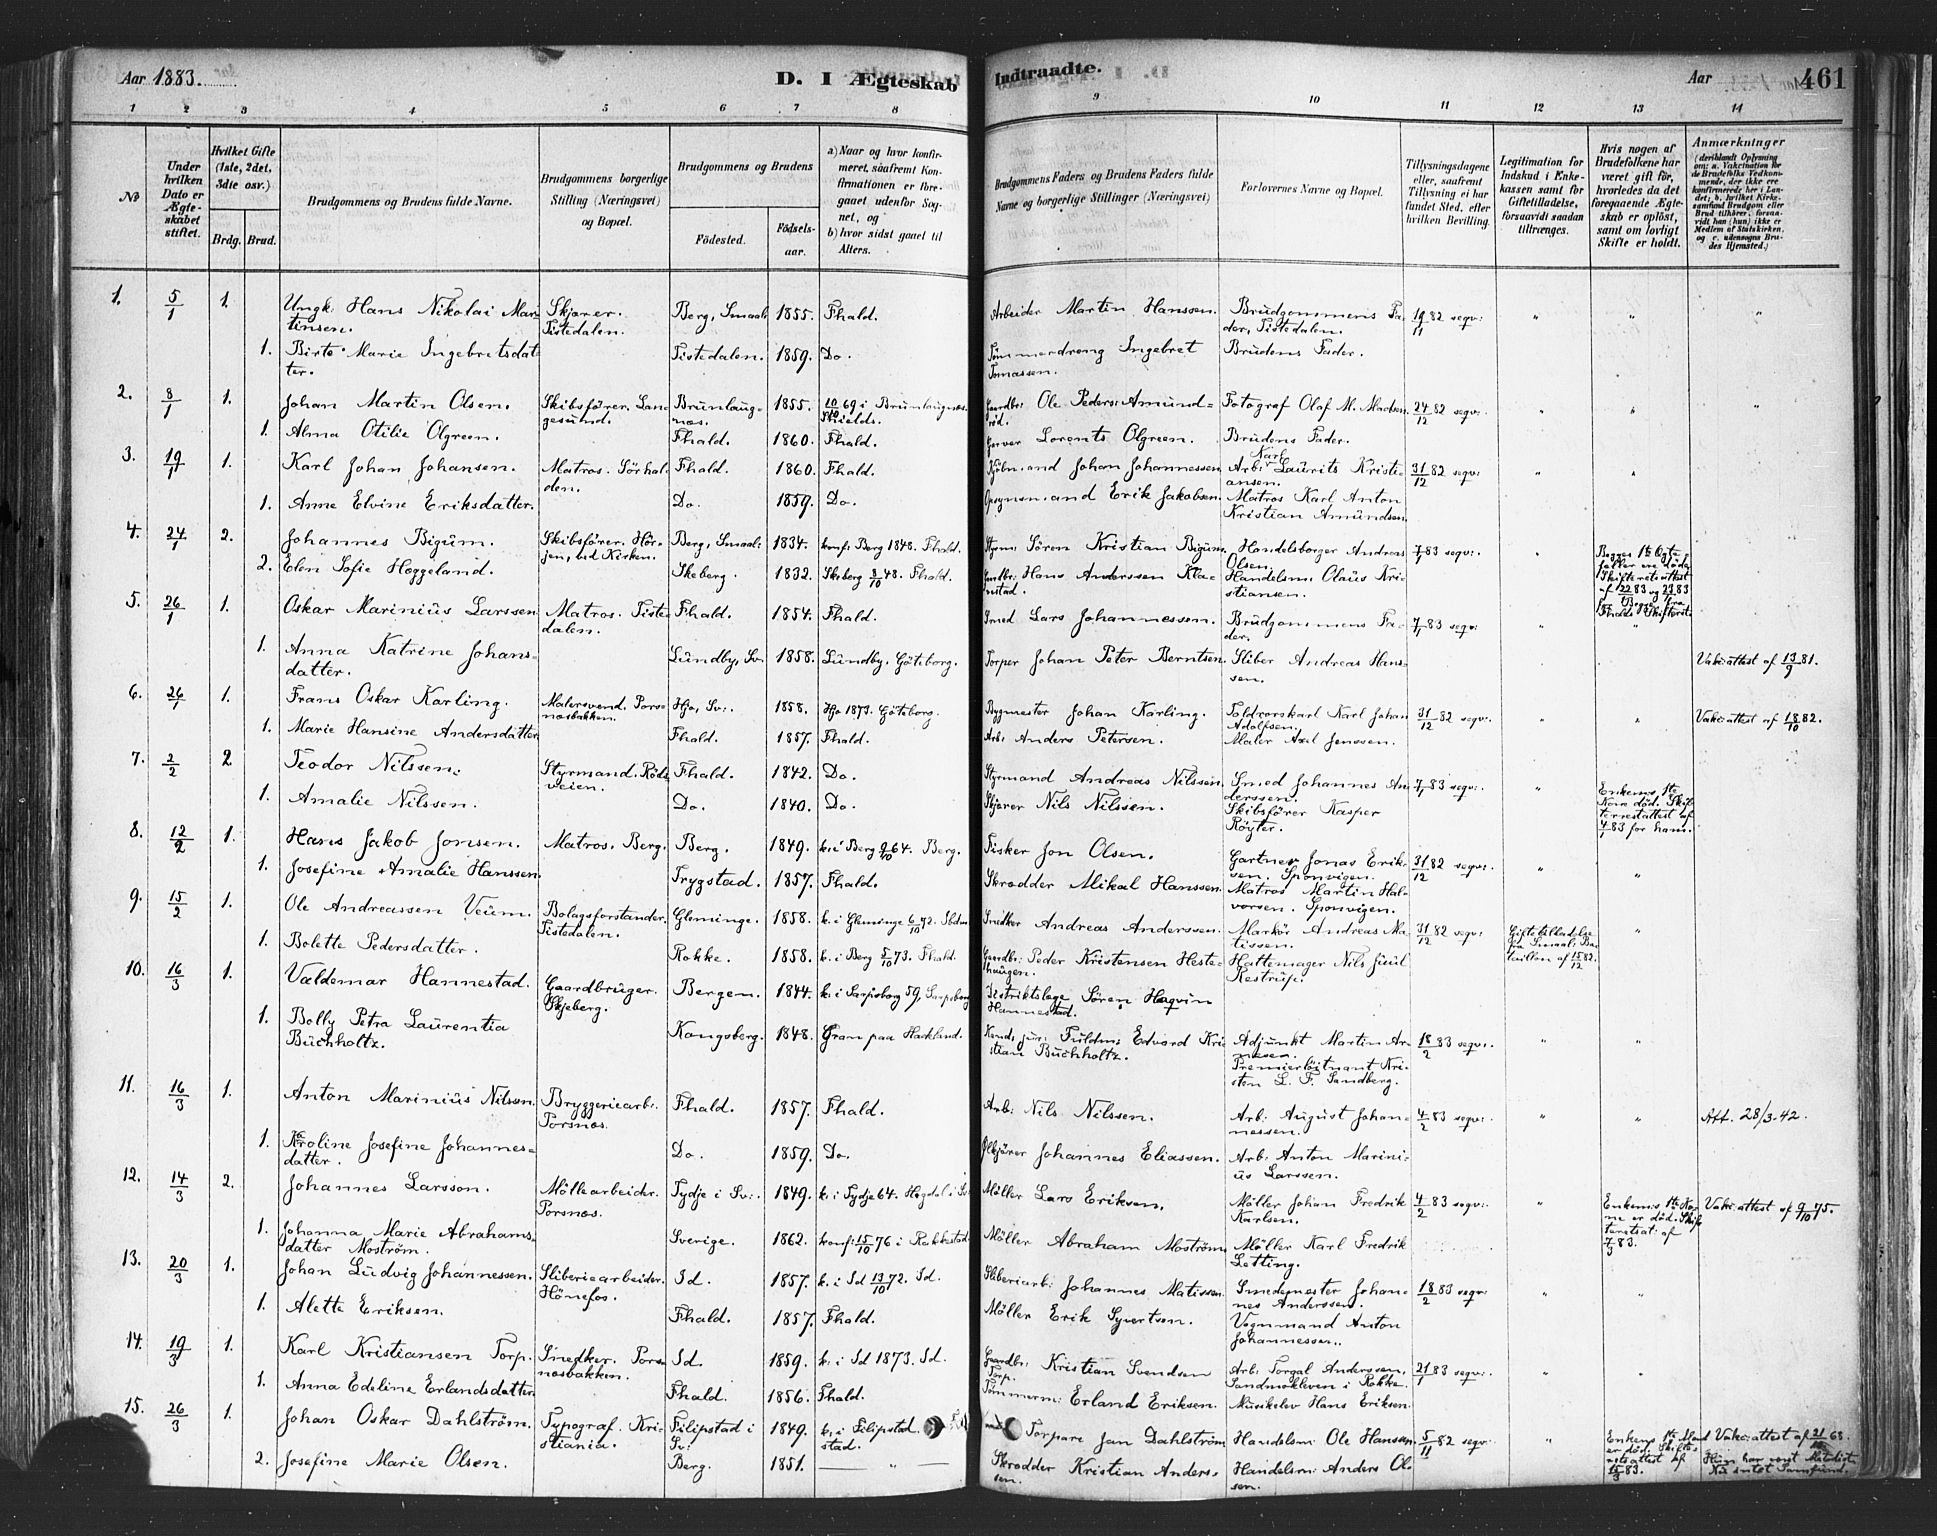 Aar 1883.
D. I Ægteskab
Indtraadte.
Aar
461
1 2 3 4 5 6 7 8 9 10 11 12 13 14
No
Under hvilken Dato er Ægteskabet stiftet.
Hvilket Gifte (1ste, 2det, 3die osv.)
Brdg. Brud.
Brudgommens og Brudens fulde Navne.
Brudgommens borgerlige Stilling (Næringsvei) og Bopæl.
Brudgommens og Brudens
Födested.
Födsels-aar.
a) Naar og hvor konfirmeret, saafremt Konfirmationen er foregaaet udenfor Sognet, og
b) hvor sidst gaaet til Alters.
Brudgommens Faders og Brudens Faders fulde Navne og borgerlige Stillinger (Næringsvei)
Forlovernes Navne og Bopæl.
Tillysningsdagene eller, saafremt Tillysning ei har fundet Sted, efter hvilken Bevilling.
Legitimation for Indskud i Enkekassen samt for Giftetilladelse, forsaavidt saadan tiltrænges.
Hvis nogen af Brudefolkene har været gift för, hvorledes da det foregaaende Ægteskab er oplöst, samt om lovligt Skifte er holdt.
Anmærkninger
(deriblandt Oplysning om: a. Vaksination for de Brudefolks Vedkommende, der ikke ere konfirmerede her i Landet; b. hvilket Kirkesamfund Brudgom eller Brud tilhörer, forsaavidt han (hun) ikke er Medlem af Statskirken, og c. udensogns Brudes Hjemsted.)
1. 5/1 1. Ungk. Hans Nikolai Martinsen. Skjærer. Tistedalen. Berg, Smaal. 1855. Fhald. Arbeider Martin Hanssen. Brudgommens Fader, Tistedalen. 19/11 82 seqv: " " "
1. Birte Marie Ingebretsdatter. Tistedalen. 1859. Do. Tömmerdreng Ingebret Tomassen. Brudens Fader.
2. 8/1 1. Johan Martin Olsen. Skibsförer. Langesund. Brunlaugnæs. 1855. 10/10 69 i Brunlaugnæs. Shields. Gaardbr: Ole Peders: Amundröd. Fotograf Olaf M. Madsen. 24/12 82 seqv: " " "
1. Alma Otilie Olgreen. Fhald. 1860. Fhald. Garver Lorents Olgreen. Brudens Fader.
3. 19/1 1. Karl Johan Johansen. Matros. Sörhalden. Fhald. 1860. Fhald. Kjöbmand Johan Johannessen. Arb: Karl Laurits Kristiansen. 31/12 82 seqv: " "
1. Anne Elvine Eriksdatter. Do. 1859. Do. Opsynsmand Erik Jakobsen. Matros Karl Anton Kristian Amundsen.
4. 24/1 2. Johannes Bigum. Skibsförer. Hörjen, ved Kirken. Berg, Smaal: 1834. konf: Berg 1848. Fhald. Styrm: Sören Kristian Bigum. Handelsborger Andreas Olsen. 7/1 83 seqv: "
2. Elen Sofie Heggeland. Skeberg. 1832. Skeberg 8/10 48. Fhald. Gaardbr: Hans Anderssen Klavestad. Handelsm: Olaus Kristiansen.
5. 26/1 1. Oskar Marinius Larssen. Matros. Tistedalen. Fhald. 1854. Fhald. Smed Lars Johannessen. Brudgommens Fader. 7/1 83 seqv: " "
1. Anna Katrine Johansdatter. Lundby, Sv: 1858. Lundby. Göteborg. Torper Johan Peter Berntsen. Sliber Andreas Hanssen. Vakc: attest af 13/9 81.
6. 26/1 1. Frans Oskar Karling. Malersvend. Porsnæsbakken. Hjo, Sv:. 1858. Hjo 1873. Göteborg. Bygmester Johan Karling. Toldvorskarl Karl Johan Adolfsen. 31/12 82 seqv: " " Vakc: attest af 18/10 82.
1. Marie Hansine Andersdatter. Fhald. 1857. Fhald. Arb: Anders Petersen. Maler Axel Jenssen.
7. 2/2 2 Teodor Nilssen. Styrmand. Rödsveien. Fhald. 1842. Do. Styrmand Andreas Nilssen. Smed Johannes Anderssen. 7/1 83 seqv: " Enkems 1te Kone död. Skifteretsattest af 4/1 83 for ham.
1. Amalie Nilssen. Do. 1840. Do. Skjærer Nils Nilssen. Skibsförer Kasper Röyter.
8. 12/2 1. Hans Jakob Jonsen. Matros. Berg. Berg. 1849. k: i Berg 9/10 64. Berg. Fisker Jon Olsen. Gartner Jonas Eriksen. Sponvigen. 31/12 82 seqv: " "
1. Josefine Amalie Hanssen. Trygstad. 1857. Fhald. Skrædder Mikal Hanssen. Matros Martin Halvorsen. Sponvigen.
9. 15/2 1. Ole Andreassen Veum. Bolagsforstander. Tistedalen. Gleminge. 1858. k. i Gleminge 6/10 72. Snedker Andreas Anderssen. Markör Andreas Matissen. 31/12 82 seqv: Giftetilladelse fra Smaal: Bataillon af 15/12 82. "
1. Bolette Pedersdatter. Rokke. 1858. k. i Berg 5/10 73. Fhald. Gaardbr: Peder Kristensen Hestehaugen. Hattemager Nils Juul Restrup.
10. 16/3 1. Valdemar Hannestad. Gaardbruger. Skjeberg. Bergen. 1844. k. i Sarpsborg 59, Sarpsborg. Distriktslæge Sören Hagvin Hannestad.
1. Bolly Petra Laurentia Buchholtz. Kongsberg. 1848. Gran paa Hadeland. Kand: jur: Fuldm: Edvard Kristian Buchholtz. Adjunkt Martin Arnesen. Premierlöitnant Kristen L. F. Sandberg. 18/2 83 seqv: " "
11. 16/3 1. Anton Marinius Nilssen. Bryggeriearb: Porsnæs. Fhald. 1857. Fhald. Arb: Nils Nilssen. Arb: August Johannessen. 4/2 83 seqv: " " Att. 28/3-42.
1. Karoline Josefine Johannesdatter. Do. 1859. Do. Johannes Eliassen. Arb: Anton Marinius Larssen.
12. 14/3 2. Johannes Larsson. Möllearbeider. Porsnæs. Tydje i Sv:. 1849. k: i Tydje 64. Högdal i Sv. Möller Lars Eriksen. Möller Johan Fredrik Karlsen. 4/2 83 seqv: " Enkems 1te Kone er död. Skifteretsat: af 7/3 83. Vakc: attest af 9/10 75.
1. Johanna Marie Abrahamsdatter Moström. Sverige. 1862. konf: 15/10 76 i Rakkestad. Möller Abraham Moström. Möller Karl Fredrik Letting.
13. 20/3 1. Johan Ludvig Johannessen. Sliberiearbeider. Hönefos. Id. 1857. k. i Id 13/10 72. Id. Sliberiarb: Johannes Matissen. Smedemester Johannes Anderssen. 18/2 83 seqv: " "
1. Alette Eriksen. Fhald. 1857. Fhald. Möller Erik Syvertsen. Vognmand Anton Johannessen.
14. 19/3 1. Karl Kristiansen Torp. Snedker. Porsnæsbakken. Id. 1859. k. i Id 1873. Id. Gaardbr: Kristian Svendsen Torp. Arb: Torgal Anderssen. Sandmokleven i Rokke. 21/1 83 seqv: " "
1. Anna Edeline Erlandsdatter. Fhald. 1856. Fhald. Tömmerm: Erland Eriksen. Musikelev Hans Eriksen.
15. 26/3 1. Johan Oskar Dahlström. Typograf. Kristiania. Filipstad i Sv: 1849. k: i Filipstad. Torpare Jan Dahlström. Handelsm: Ole Hansen. 5/11 82 seqv: " Enkens 1te Mand er död. Skifteretsattest af 15/3 83. Vakc: attest af
2. Josefine Marie Olsen. Berg. 1851. — " — Skrædder Kristian Anderssen. Handelsm: Anders Olsen. Hun har været Metodist.